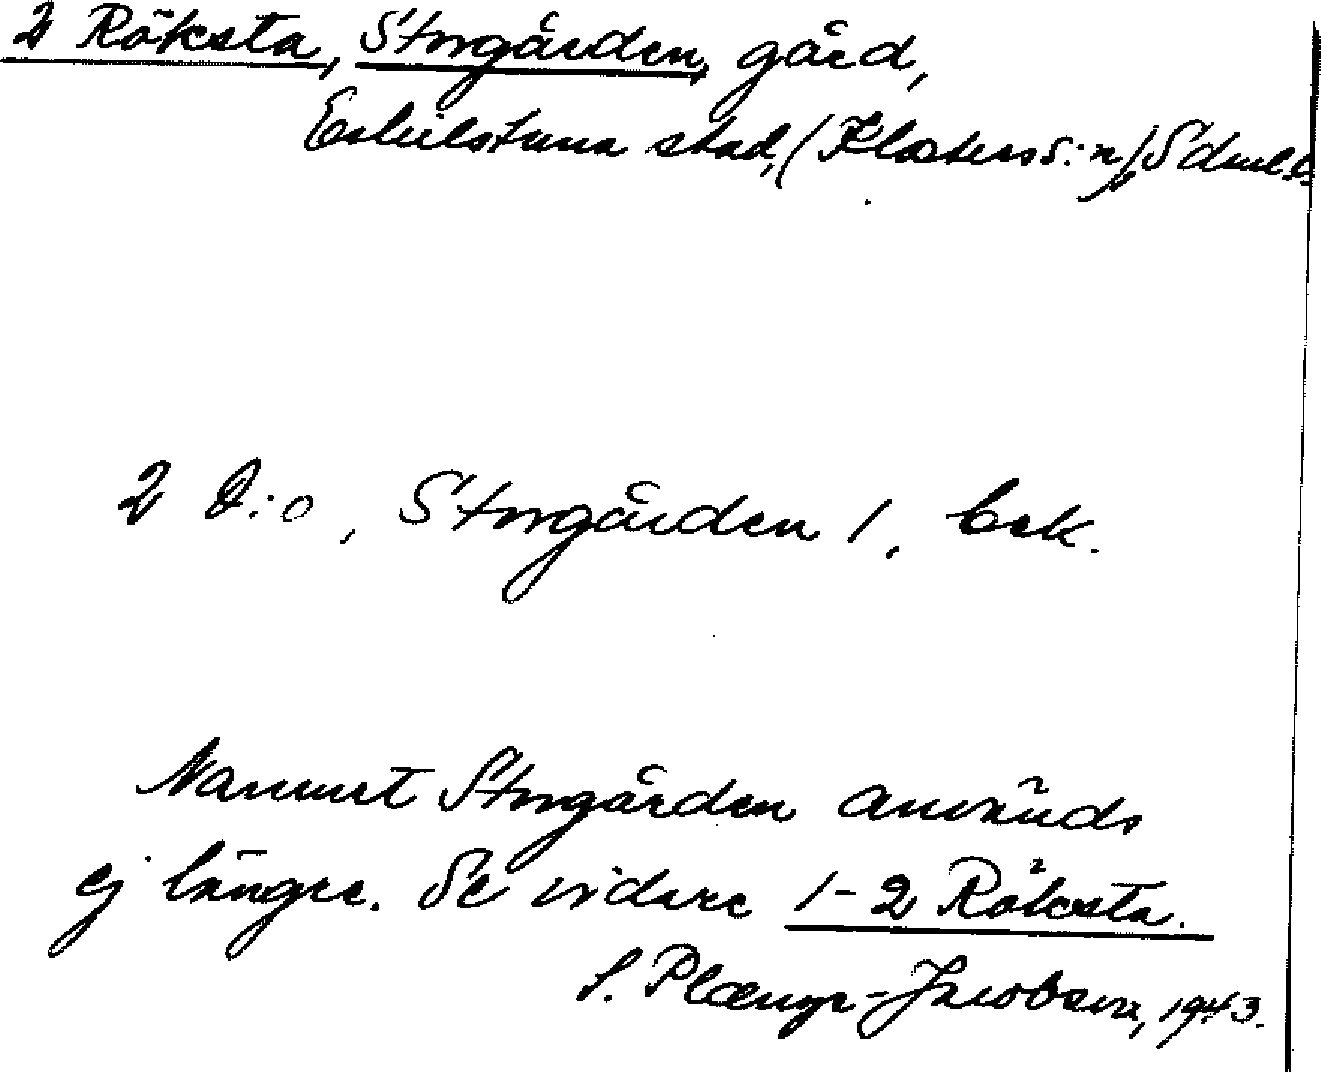 2 Röksta, Storgården, gård,
Eskilstuna stad, (Klosters s:n), Sdml.
2 D:o, Storgården 1, bek.
Namnet Storgården används
ej längre. Se vidare 1-2 Röksta.
S. Plænge-Jacobson, 1943.